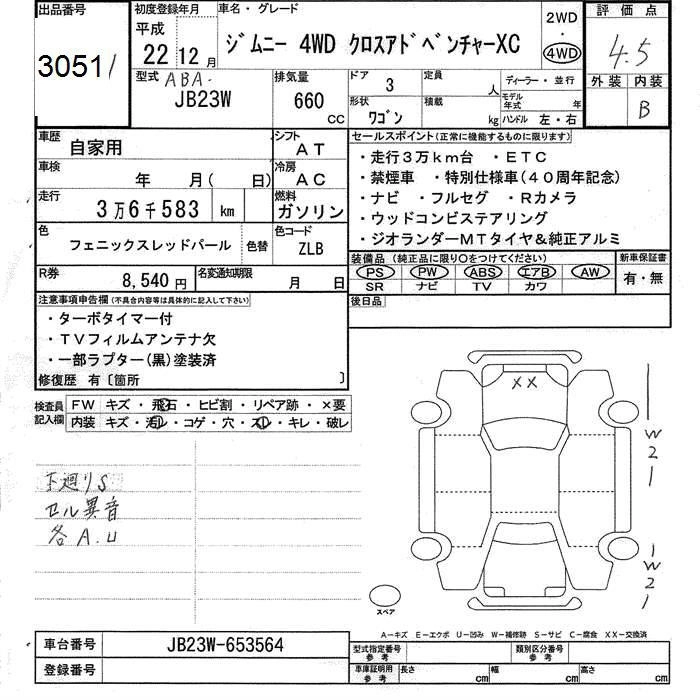 出品番号 初度登録年月 車名・グレード 2WD 評価点
3051 平成 22 12月 ジムニー 4WD クロスアドベンチャーXC ・ 4WD 4.5
型式 ABA- JB23W 排気量 660 CC ドア 3 定員 人 ディーラー・並行 外装 内装
形状 ワゴン 積載 kg モデル年式 年 ハンドル 左・右 B
車歴 自家用 シフト AT セールスポイント(正常に機能するものに限ります)
車検 年 月( 日) 冷房 AC ・走行3万km台 ・ETC
走行 3万6千583 km 燃料 ガソリン ・禁煙車 ・特別仕様車(40周年記念)
・ナビ ・フルセグ ・Rカメラ
色 フェニックスレッドパール 色替 色コード ZLB ・ウッドコンビステアリング
・ジオランダーMTタイヤ&純正アルミ
R券 8,540円 名変通知期限 月 日 装備品 (純正品に限り○をつけてください) 新車保証書
PS PW ABS エアB AW 有・無
SR ナビ TV カワ
注意事項申告欄(不具合内容等は具体的に記入して下さい) 後日品
・ターボタイマー付
・TVフィルムアンテナ欠
・一部ラプター(黒)塗装済
修復歴 有〔箇所 〕
検査員記入欄 FW キズ・飛石・ヒビ割・リペア跡・×要
内装 キズ・汚レ・コゲ・穴・スレ・キレ・破レ
XX
W2
下廻りS
セル異音
各A.U
W2
スペア
A-キズ E-エクボ U-凹み W-補修跡 S-サビ C-腐食 XX-交換済
車台番号 JB23W-653564 型式指定番号 参考 類別区分番号 参考
登録番号 車庫証明用 参考 長さ cm 幅 cm 高さ cm